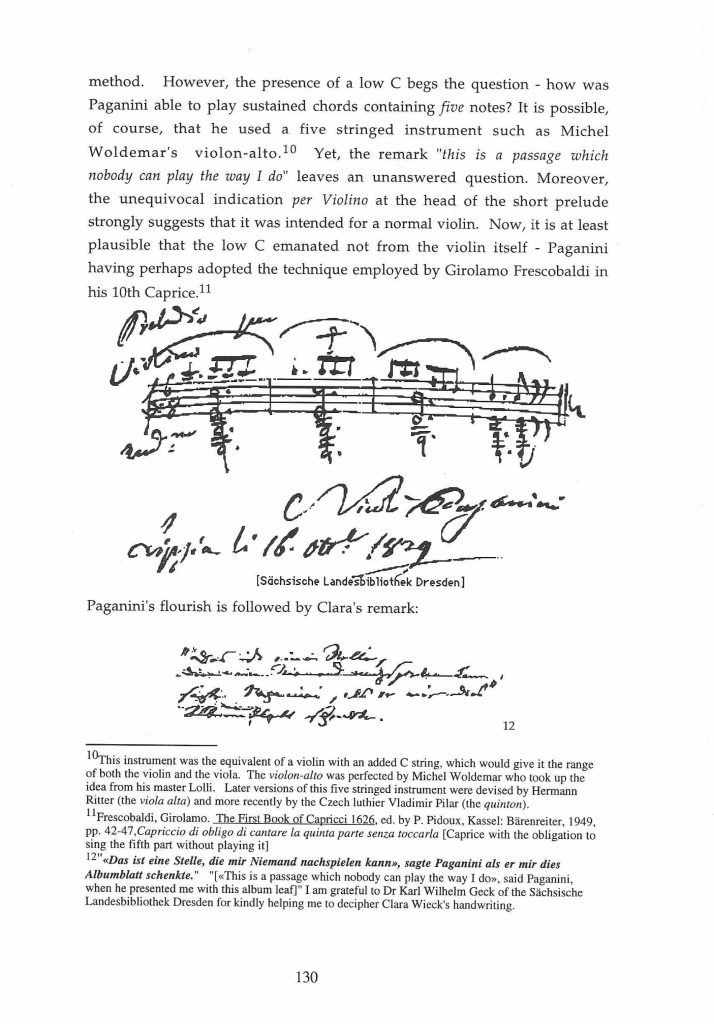 method. However, the presence of a low C begs the question - how was
Paganini able to play sustained chords containing five notes? It is possible,
of course, that he used a five stringed instrument such as Michel
Woldemar's violon-alto.10 Yet, the remark "this is a passage which
nobody can play the way I do" leaves an unanswered question. Moreover,
the unequivocal indication per Violino at the head of the short prelude
strongly suggests that it was intended for a normal violin. Now, it is at least
plausible that the low C emanated not from the violin itself - Paganini
having perhaps adopted the technique employed by Girolamo Frescobaldi in
his 10th Caprice.11
Preludio per
Violino
Paganini
li 16. 1829
[Sächsische Landesbibliothek Dresden]
Paganini's flourish is followed by Clara's remark:
"Das ist eine Stelle,
die mir Niemand nachspielen kann",
sagte Paganini, als er mir dies
Albumblatt schenkte.
12
10This instrument was the equivalent of a violin with an added C string, which would give it the range
of both the violin and the viola. The violon-alto was perfected by Michel Woldemar who took up the
idea from his master Lolli. Later versions of this five stringed instrument were devised by Hermann
Ritter (the viola alta) and more recently by the Czech luthier Vladimir Pilar (the quinton).
11Frescobaldi, Girolamo. The First Book of Capricci 1626, ed. by P. Pidoux, Kassel: Bärenreiter, 1949,
pp. 42-47,Capriccio di obligo di cantare la quinta parte senza toccarla [Caprice with the obligation to
sing the fifth part without playing it]
12"«Das ist eine Stelle, die mir Niemand nachspielen kann», sagte Paganini als er mir dies
Albumblatt schenkte." "[«This is a passage which nobody can play the way I do», said Paganini,
when he presented me with this album leaf]" I am grateful to Dr Karl Wilhelm Geck of the Sächsische
Landesbibliothek Dresden for kindly helping me to decipher Clara Wieck's handwriting.
130